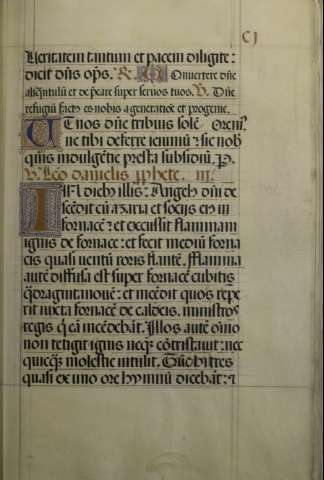 CJ
Veritatem tantum et pacem diligite:
dicit dñs ops. R. Convertere dñe
aliqntulũ et depcare super servos tuos. V. Dñe
refugiũ factꝰ es nobis a generatiõe et progenie.
Ut nos dñe tribuis solẽ Oremꝰ.
ne tibi deferre ieiuniũ: sic nob
qms indulgẽtie presta subsidiũ. P.
V. Leo danielis pphete. III.
In diebꝰ illis: Angelꝰ dñi de
scẽdit cũ azaria et socijs eiꝰ in
fornacẽ: et excussit flammam
ignis de fornace: et fecit mediũ forna
cis quasi uentũ roris flantẽ. Flamma
autẽ diffusa est super fornacẽ cubitis
qdraginta nouẽ: et incẽdit quos repe
rit iuxta fornacẽ de caldeis. ministros
regis q eã incẽdebãt. Illos autẽ oĩno
non tetigit ignis necqꝫ cõtristauit: nec
quicqꝫ molestie intulit. Tũc hi tres
quasi ex uno ore hymnũ dicebãt: ⁊